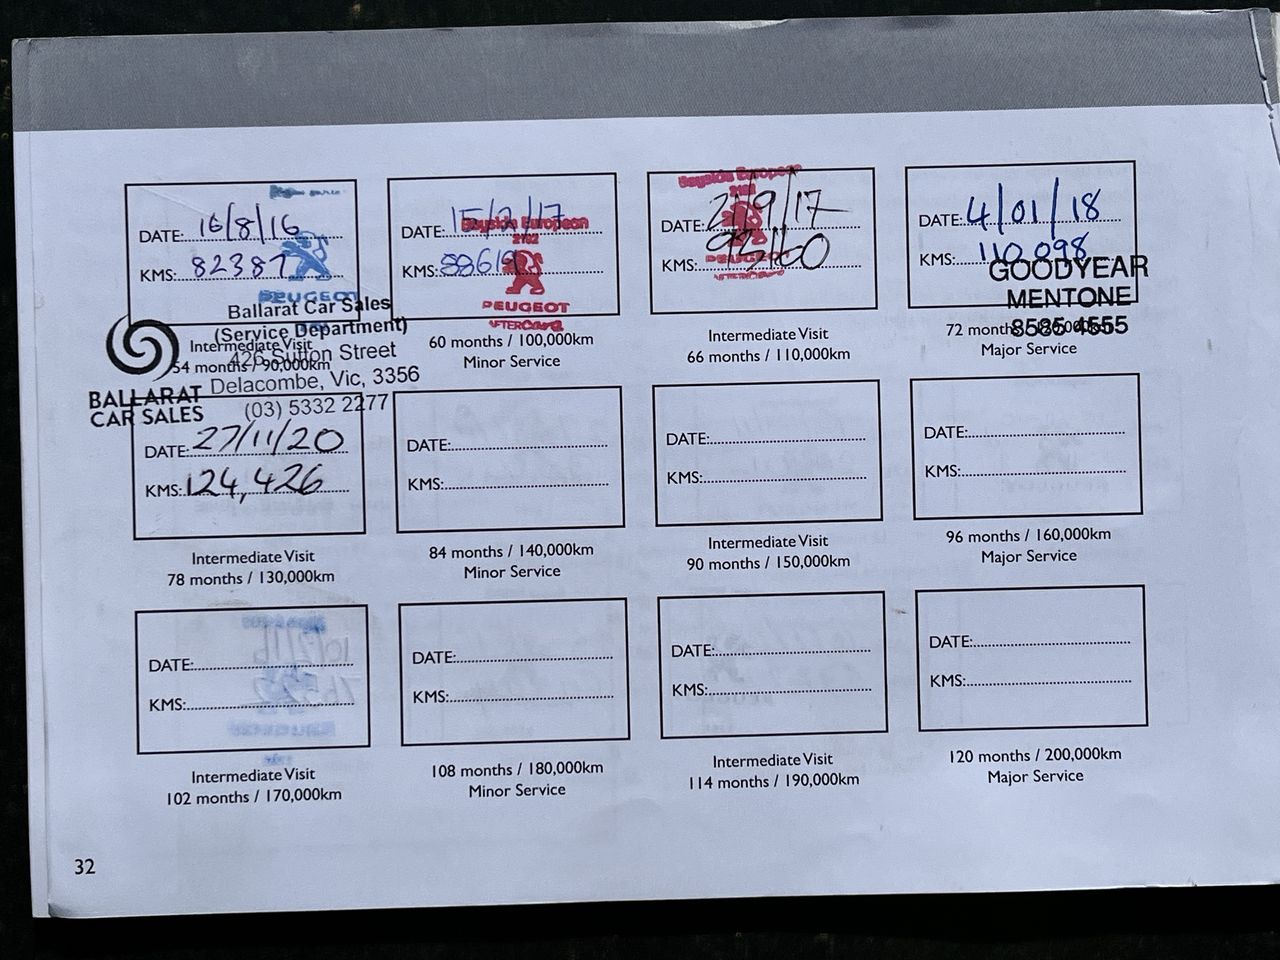 DATE: 16/8/16
KMS: 82387
PEUGEOT
Intermediate Visit
54 months / 90,000km
DATE: 15/2/17
Bayside European
KMS: 8861
PEUGEOT
60 months / 100,000km
Minor Service
Bayside European
DATE: 21/9/17
KMS:
PEUGEOT
Intermediate Visit
66 months / 110,000km
DATE: 4/01/18
KMS: 110,098
GOODYEAR
MENTONE
8585 4555
72 months
Major Service
BALLARAT
CAR SALES
Ballarat Car Sales
(Service Department)
426 Sutton Street
Delacombe, Vic, 3356
(03) 5332 2277
DATE: 27/11/20
KMS: 124,426
Intermediate Visit
78 months / 130,000km
DATE:
KMS:
84 months / 140,000km
Minor Service
DATE:
KMS:
Intermediate Visit
90 months / 150,000km
DATE:
KMS:
96 months / 160,000km
Major Service
DATE:
KMS:
Intermediate Visit
102 months / 170,000km
DATE:
KMS:
108 months / 180,000km
Minor Service
DATE:
KMS:
Intermediate Visit
114 months / 190,000km
DATE:
KMS:
120 months / 200,000km
Major Service
32